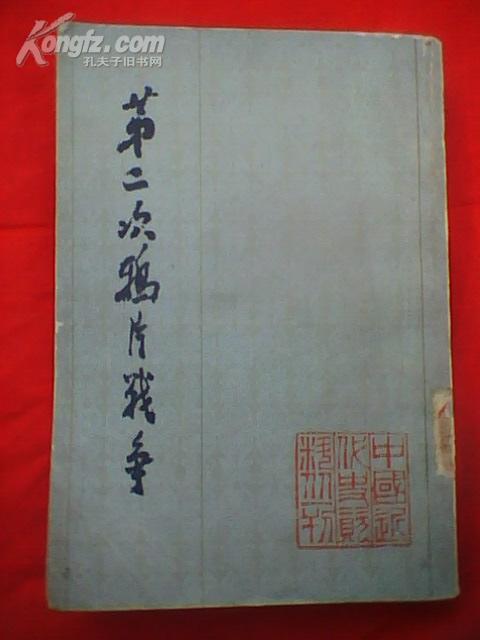 Kongfz.com
孔夫子旧书网
第二次鸦片战争
中國近
代史資
料丛刊